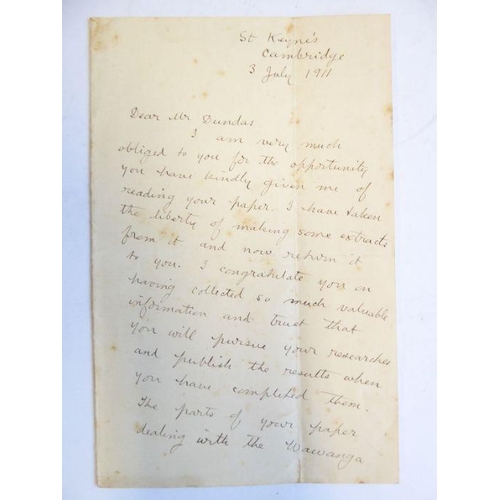 St Keyne's
Cambridge
3 July 1911
Dear Mr Dundas
I am very much
obliged to you for the opportunity
you have kindly given me of
reading your paper. I have taken
the liberty of making some extracts
from it and now return it
to you. I congratulate you on
having collected so much valuable
information and trust that
you will pursue your researches
and publish the results when
you have completed them.
The parts of your paper
dealing with the Wawanga